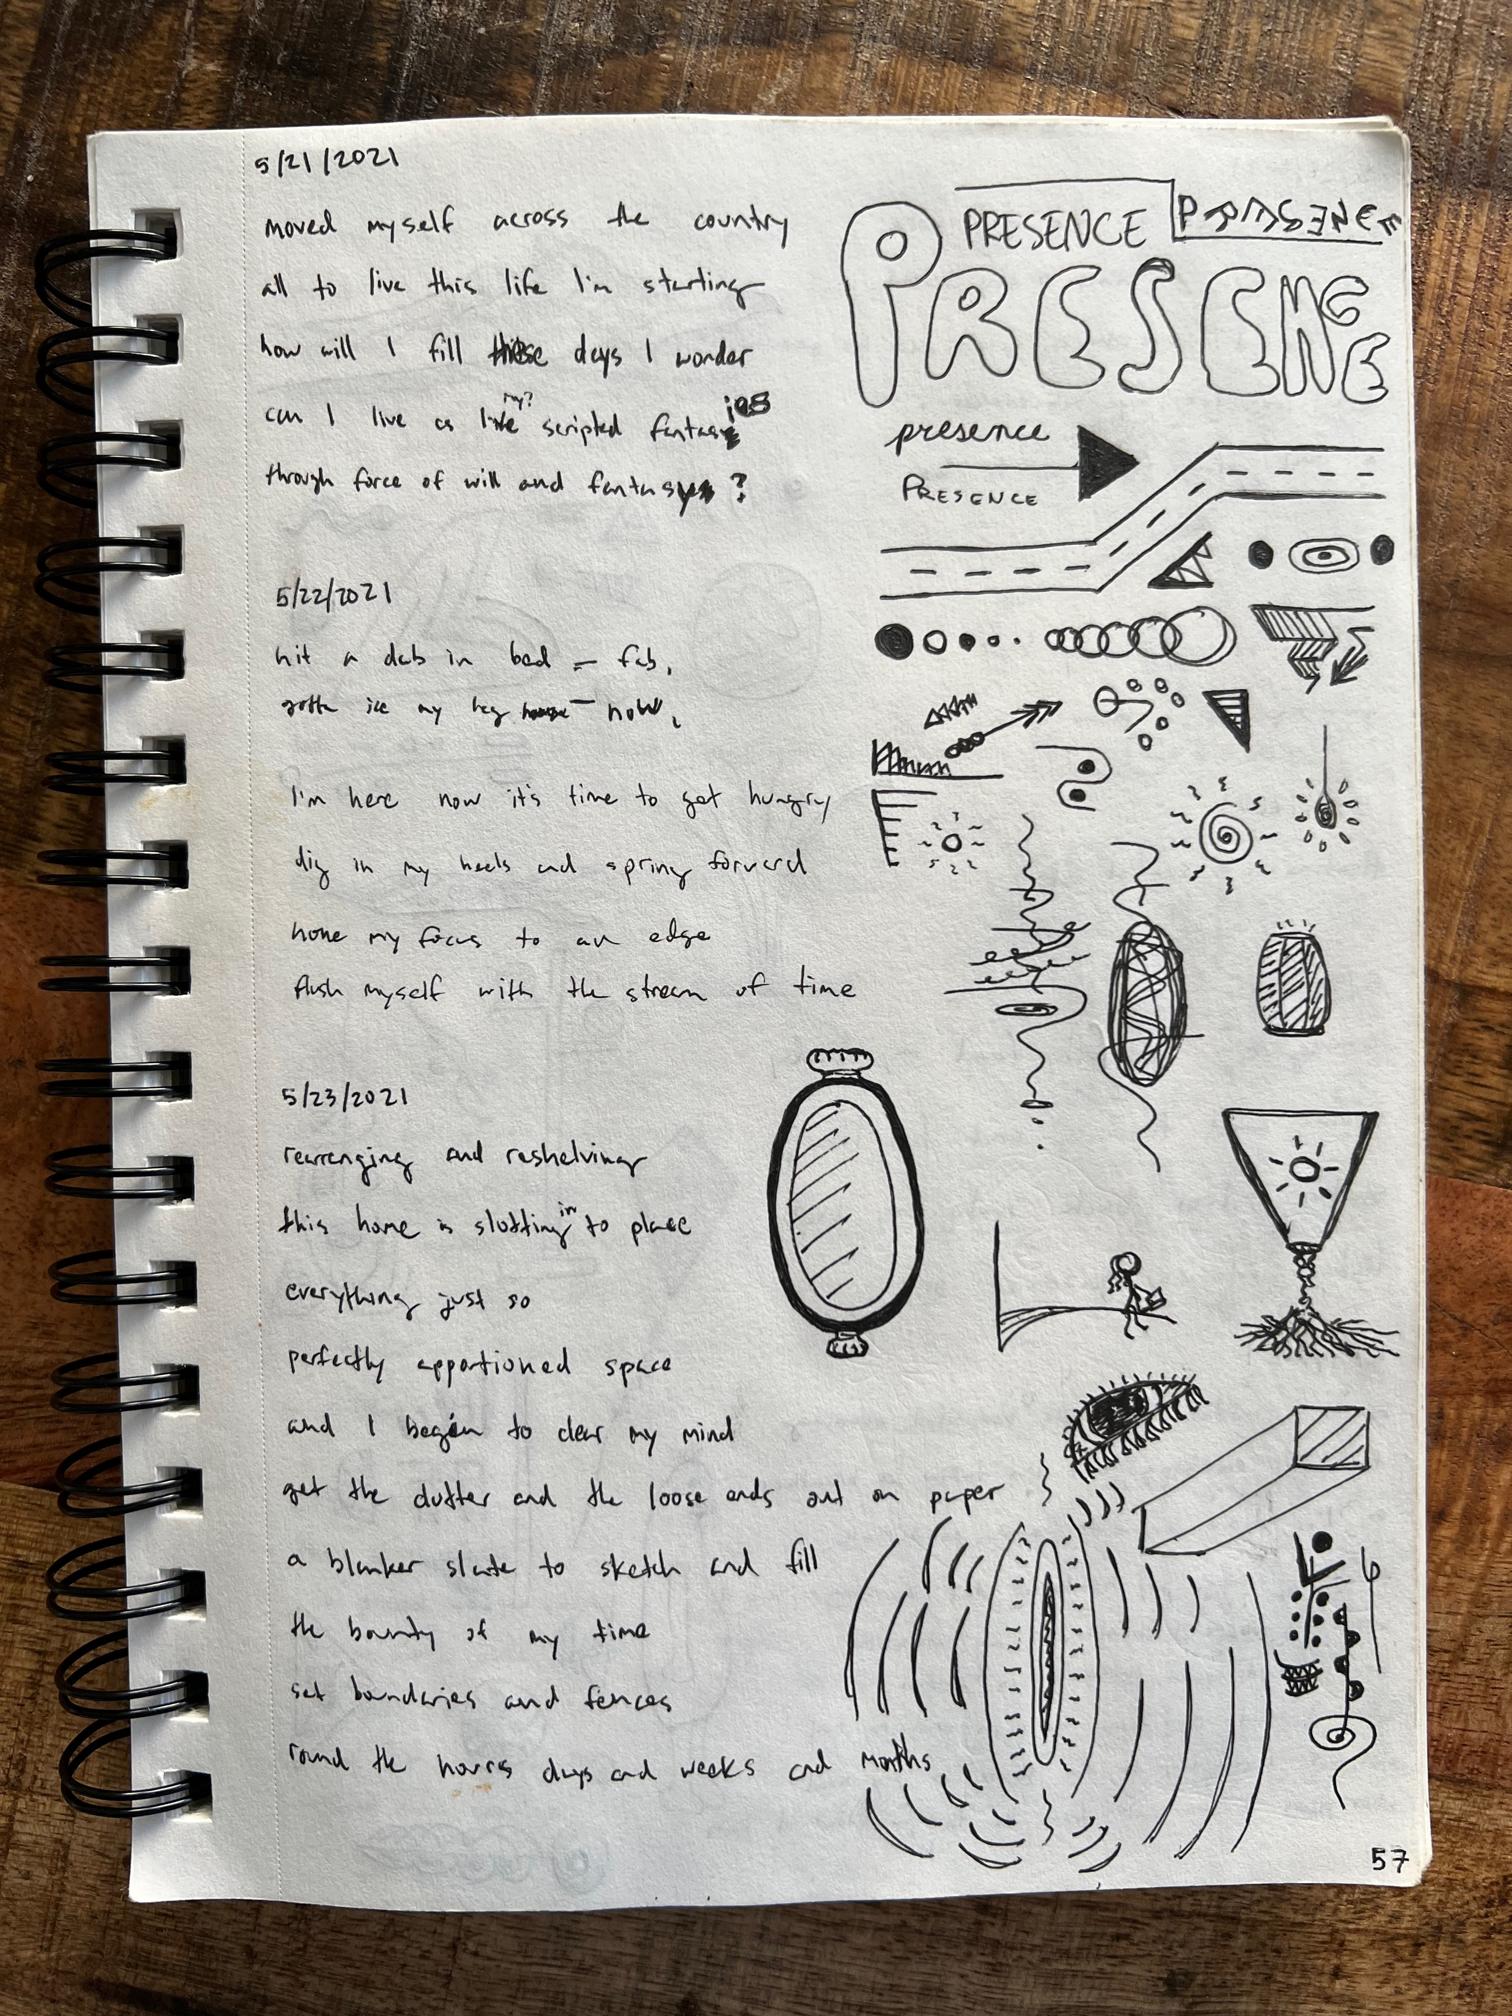 5/21/2021
moved myself across the country
all to live this life I'm starting
how will I fill these days I wonder
my?
can I live as like scripted fantasies
through force of will and fantasy ?
5/22/2021
hit a dab in bed – fab,
gotta ice my leg – now,
I'm here now it's time to get hungry
dig in my heels and spring forward
hone my focus to an edge
flush myself with the stream of time
5/23/2021
rearranging and reshelving
in
this home is slotting to place
everything just so
perfectly apportioned space
and I begin to clear my mind
get the clutter and the loose ends out on paper
a blanker slate to sketch and fill
the bounty of my time
set boundaries and fences
round the hours days and weeks and months
PRESENCE
PRESENCE
PRESENCE
presence
PRESENCE
57